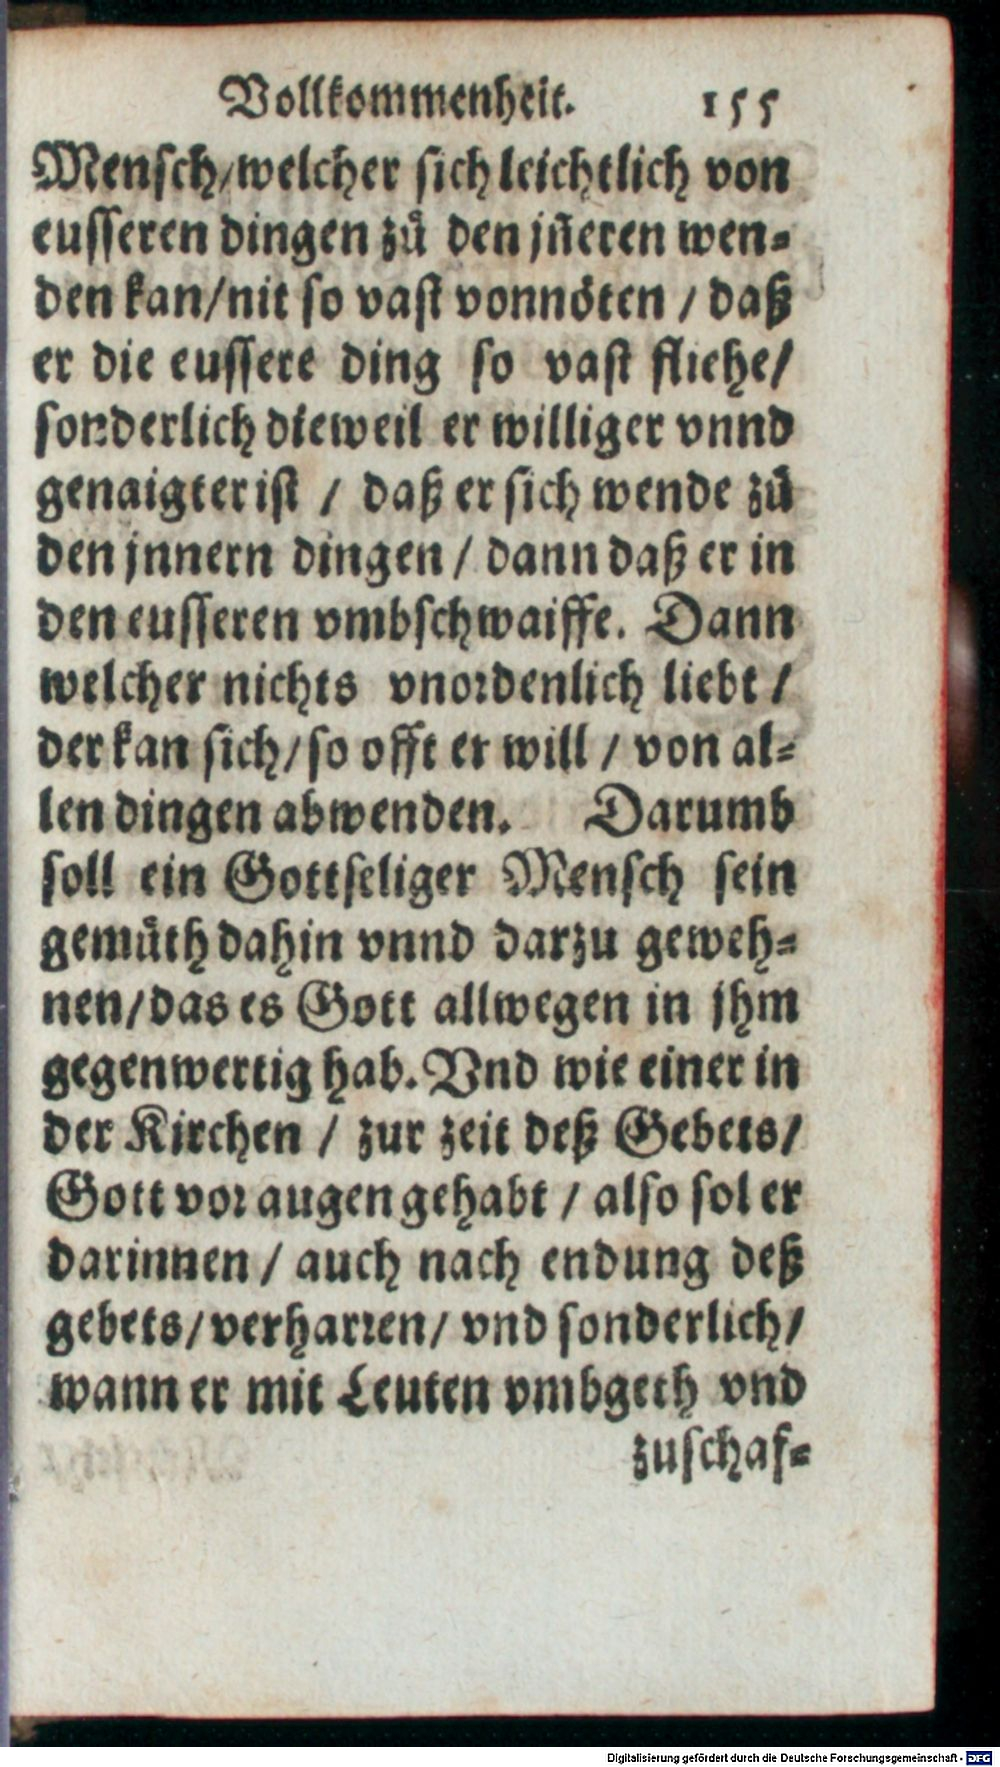 Vollkommenheit. 155
Mensch/welcher sich leichtlich von
eusseren dingen zů den jñeren wen-
den kan/nit so vast vonnöten / daß
er die eussere ding so vast fliehe/
sonderlich dieweil er williger vnnd
genaigter ist / daß er sich wende zů
den jnnern dingen / dann daß er in
den eusseren vmbschwaiffe. Dann
welcher nichts vnordenlich liebt /
der kan sich/so offt er will / von al-
len dingen abwenden. Darumb
soll ein Gottseliger Mensch sein
gemüth dahin vnnd darzu geweh-
nen/das es Gott allwegen in jhm
gegenwertig hab. Vnd wie einer in
der Kirchen / zur zeit deß Gebets/
Gott vor augen gehabt / also sol er
darinnen / auch nach endung deß
gebets/verharren/ vnd sonderlich/
wann er mit Leuten vmbgeth vnd
zuschaf-
Digitalisierung gefördert durch die Deutsche Forschungsgemeinschaft - DFG